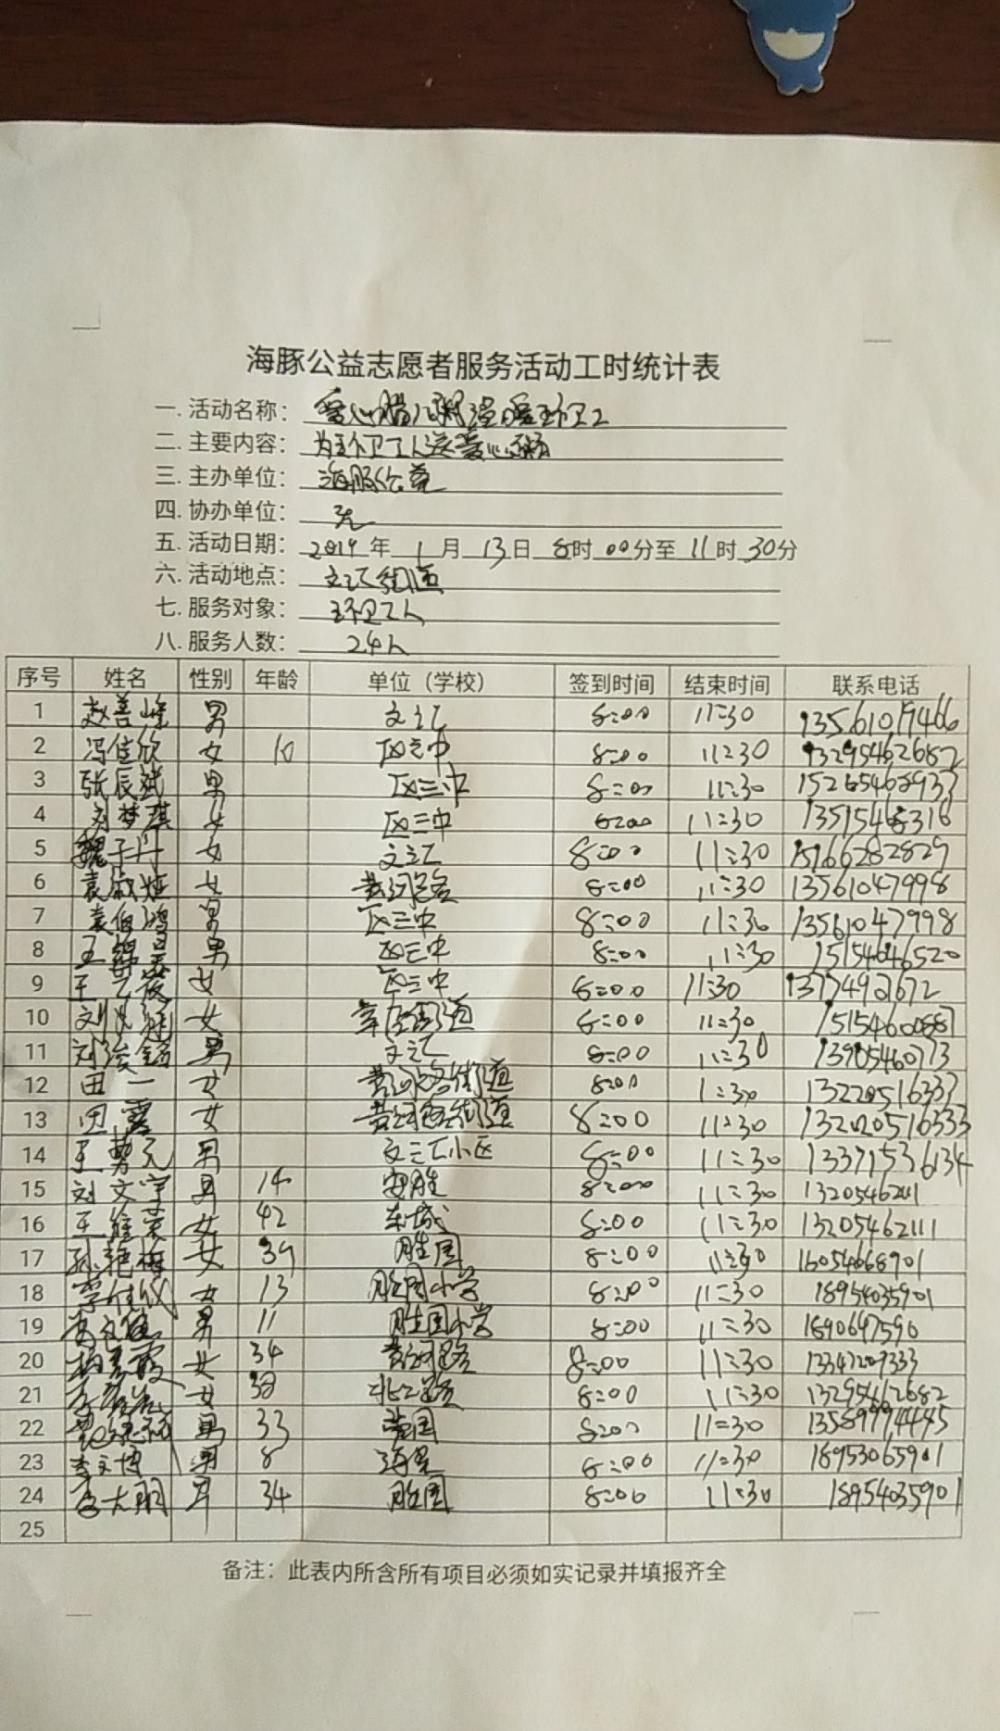 海豚公益志愿者服务活动工时统计表
一. 活动名称： 爱心腊八粥温暖环卫工
二. 主要内容： 为环卫工人送爱心粥
三. 主办单位： 海豚公益
四. 协办单位： 无
五. 活动日期： 2019 年 1 月 13 日 8 时 00 分至 11 时 30 分
六. 活动地点： 文汇街道
七. 服务对象： 环卫工人
八. 服务人数： 24人
序号 姓名 性别 年龄 单位（学校） 签到时间 结束时间 联系电话
1 赵善 男 文汇 8:00 11:30 13561019466
2 冯佳欣 女 10 区三中 8:00 11:30 13295462682
3 张辰斌 男 区三中 8:00 11:30 15265468933
4 刘梦琪 女 区三中 8:00 11:30 13515468316
5 魏子丹 女 文汇 8:00 11:30 15166282829
6 袁 女 黄河路 8:00 11:30 13561047998
7 袁伯鸿 男 区三中 8:00 11:30 13561047998
8 王 男 区三中 8:00 11:30 15154646520
9 王艺筱 女 区三中 8:00 11:30 1377492672
10 刘 女 辛店街道 8:00 11:30 15154600887
11 刘 男 文汇 8:00 11:30 13905460713
12 田一 女 黄河路街道 8:00 11:30 13220516333
13 田露 女 黄河路街道 8:00 11:30 132020516333
14 王 男 文汇小区 8:00 11:30 13371536134
15 刘文宇 男 14 安胜 8:00 11:30 1320546211
16 王 女 42 东城 8:00 11:30 13205462111
17 孙艳梅 女 39 胜园 8:00 11:30 16054668901
18 李佳仪 女 13 胜园小学 8:00 11:30 18954035901
19 男 11 胜园小学 8:00 11:30 1890647590
20 霞 女 34 黄河路 8:00 11:30 13347209333
21 女 38 北二路 8:00 11:30 13295462682
22 男 33 8:00 11:30 13589974445
23 李文博 男 8 海星 8:00 11:30 18953065901
24 李大朋 男 34 胜园 8:00 11:30 18954035901
25
备注：此表内所含所有项目必须如实记录并填报齐全